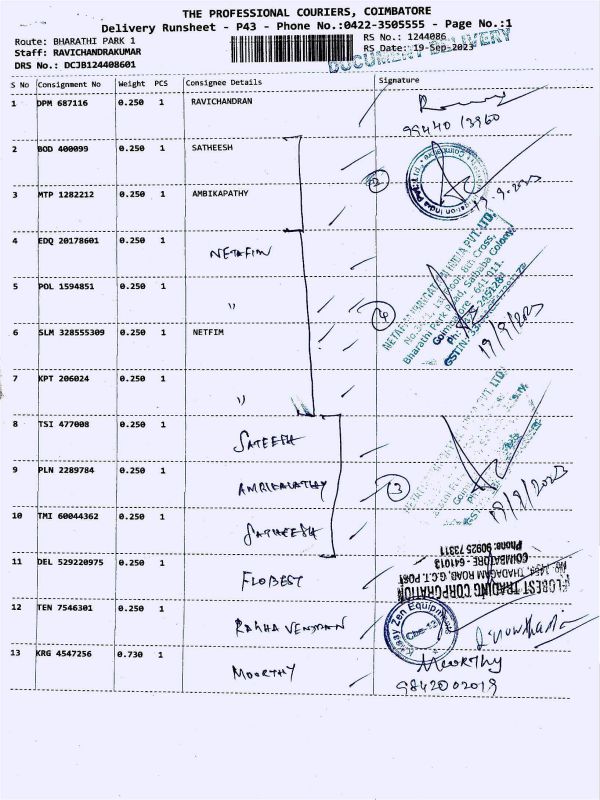 THE PROFESSIONAL COURIERS, COIMBATORE
Delivery Runsheet - P43 - Phone No.:0422-3505555 - Page No.:1
Route: BHARATHI PARK 1
RS No.: 1244086
Staff: RAVICHANDRAKUMAR
RS Date: 19-Sep-2023
DRS No.: DCJB124408601
DOCUMENT DELIVERY
S No Consignment No Weight PCS Consignee Details Signature
1 DPM 687116 0.250 1 RAVICHANDRAN
99440 13960
2 BOD 400099 0.250 1 SATHEESH
2
3 MTP 1282212 0.250 1 AMBIKAPATHY
19-9-2023
4 EDQ 20178601 0.250 1 NETAFIM
NETAFIM IRRIGATION INDIA PVT. LTD.
8th Cross,
Bharathi Park Road, Saibaba Colony
Coimbatore - 641 011.
5 POL 1594851 0.250 1 "
4
19/9/2023
6 SLM 328555309 0.250 1 NETFIM
7 KPT 206024 0.250 1 "
8 TSI 477008 0.250 1 SATEESH
9 PLN 2289784 0.250 1 AMBIKAPATHY
3
19/9/2023
10 TMI 60044362 0.250 1 SATHEESH
11 DEL 529220975 0.250 1 FLOBEST
FLOBEST TRADING CORPORATION
THADAGAM ROAD, G.C.T. POST
COIMBATORE - 641013
Phone: 90925 73311
12 TEN 7546301 0.250 1 RAGHAVENDRAN
Zen Equipment
13 KRG 4547256 0.730 1 MOORTHY
Moorthy
9842002019